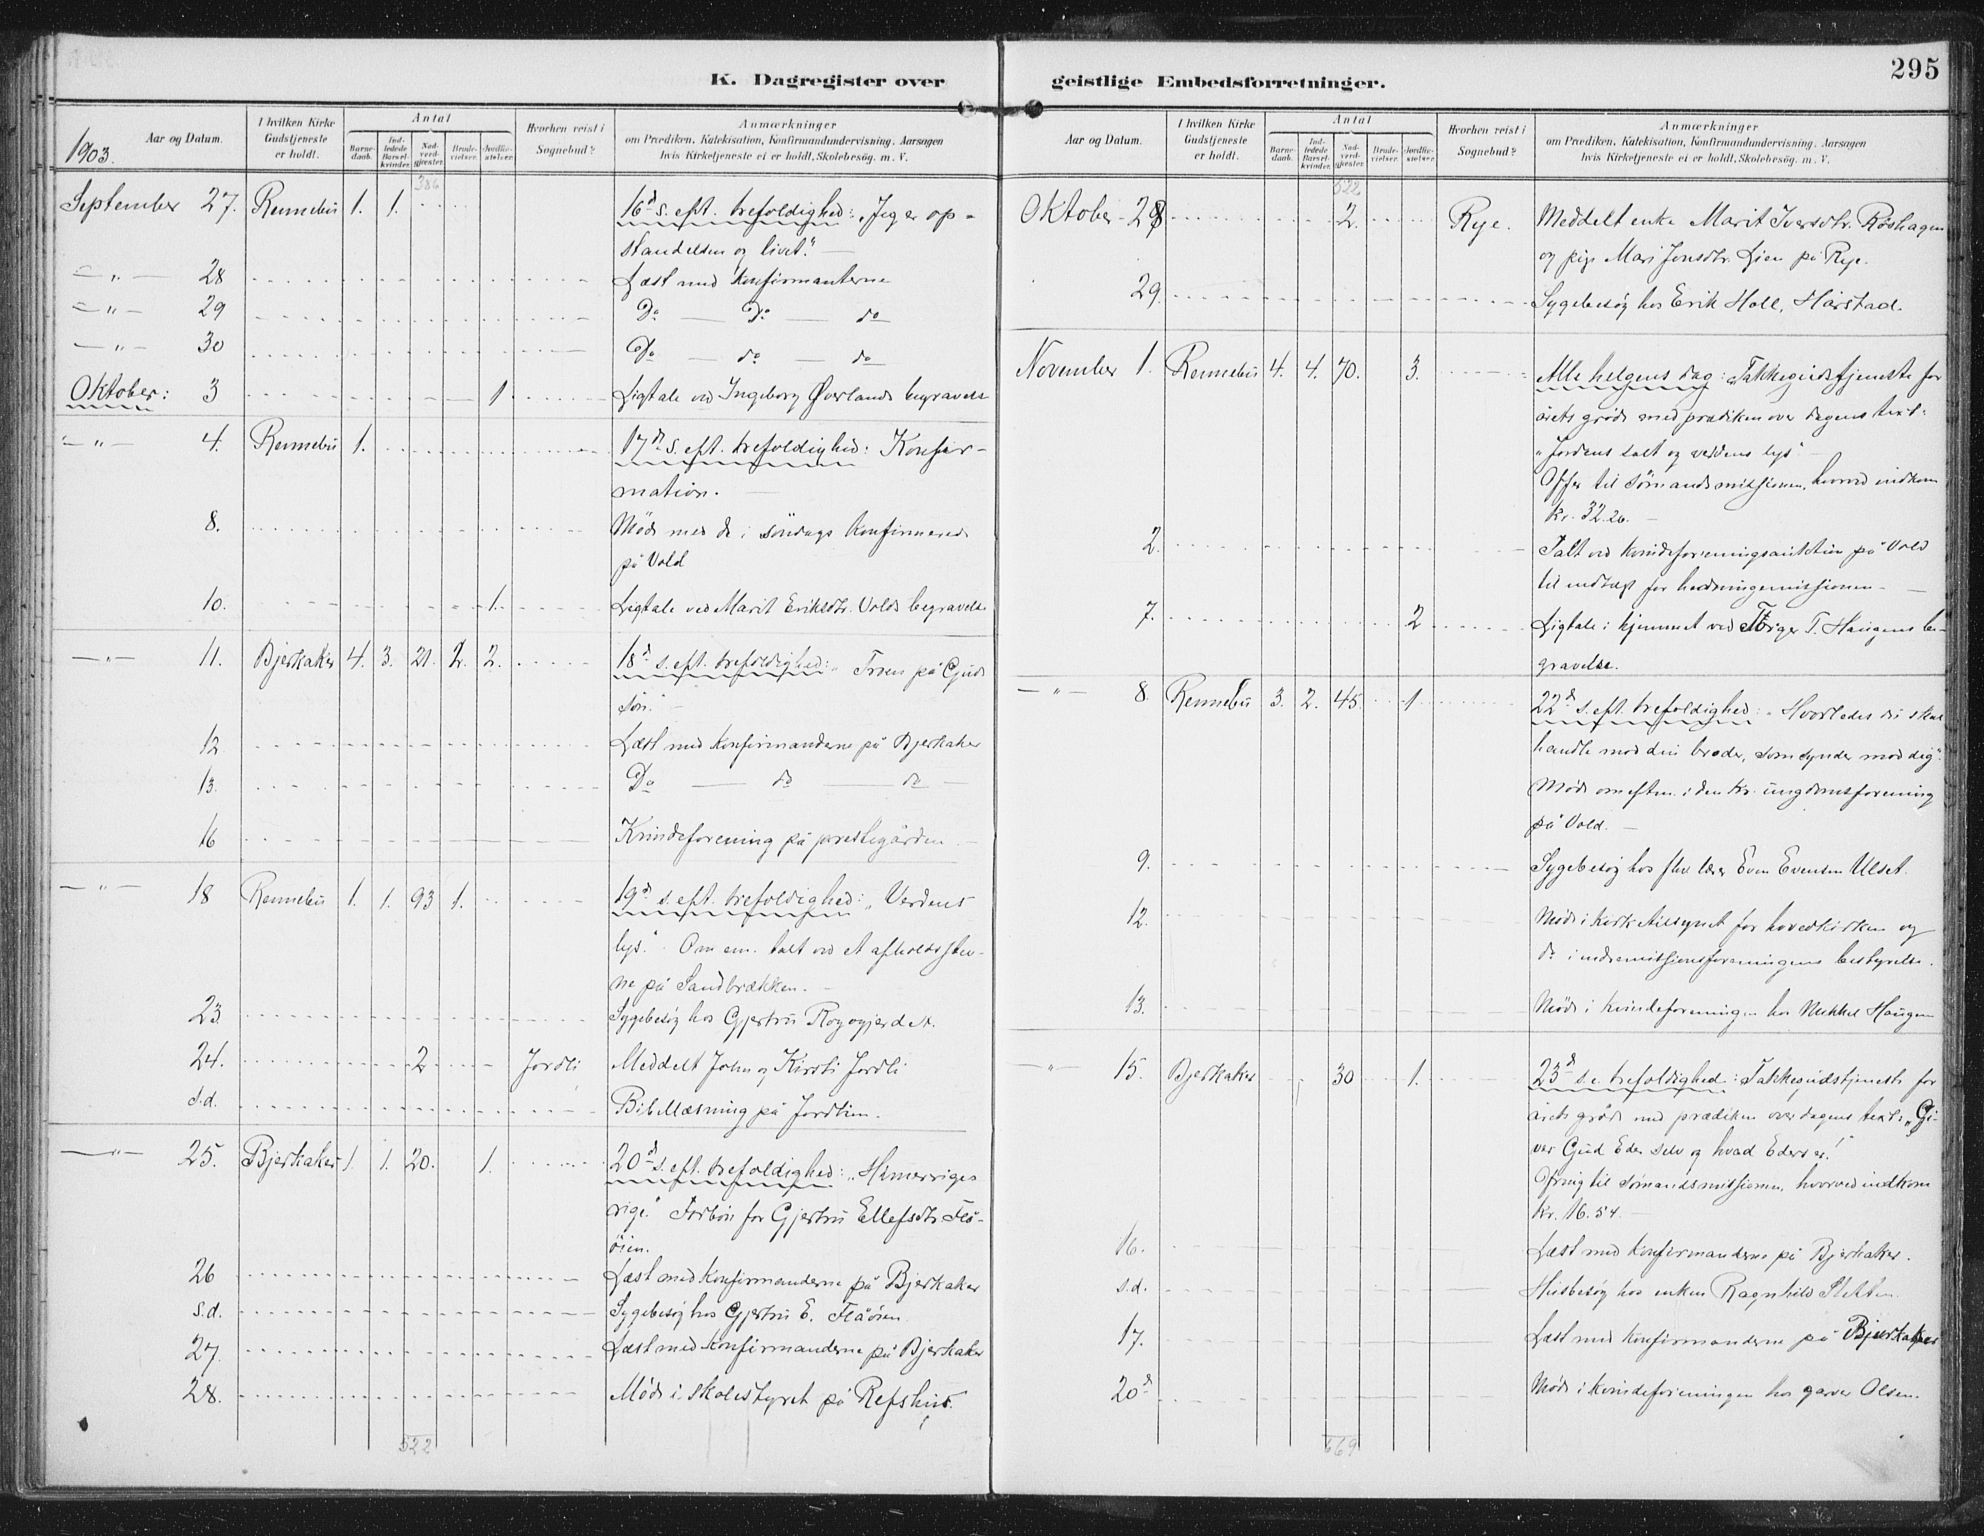 K. Dagregister over
geistlige Embedsforretninger.
295
Aar og Datum.
I hvilken Kirke Gudstjeneste er holdt.
Antal
Barne-daab.
Ind-ledede Barsel-kvinder.
Nad-verd-gjester.
Brude-vielser.
Jordfæ-stelser.
Hvorhen reist i Sognebud?
Anmærkninger
om Prædiken, Katekisation, Konfirmandundervisning. Aarsagen
hvis Kirketjeneste ei er holdt, Skolebesøg. m. V.
1903.
386
September 27. Rennebu 1. 1. 16d s. eft. trefoldighed: „Jeg er op-
standelsen og livet." —
— „ — 28 Læst med konfirmanterne
— „ — 29 Do — do — do
— „ — 30 Do — do — do
Oktober: 3 1 Ligtale ved Ingeborg Øverlands begravelse
— „ — 4. Rennebu 1. 17d s. eft. trefoldighed: Konfir-
mation. —
8. Møde med de i søndags konfirmerede
på Vold
10. 1. Ligtale ved Marit Eriksdtr. Volds begravelse
— „ — 11. Bjerkaker 4. 3. 21. 2. 2. 18d s. eft. trefoldighed: „Troen på Guds
søn." —
12 Læst med konfirmanderne på Bjerkaker
13. Do — do — do —
16 Kvindeforening på prestegården —
— „ — 18 Rennebu 1. 1. 93 1. 19d s. eft. trefoldighed: „Verdens
lys." Om em. talt ved et afholdsstev-
ne på Sandbrækken. —
23 Sygebesøg hos Gjertru
24. 2 Jordli Meddelt John og Kirsti Jordli
s.d. Bibellæsning på Jordlien.
— „ — 25. Bjerkaker 1. 1. 20. 1. 20d s. eft. trefoldighed: „Himerriges
rige." Forbøn for Gjertru Ellefsdtr. Flå-
øien.
26 Læst med konfirmanderne på Bjerkaker
s.d. Sygebesøg hos Gjertru E. Flåøien
27 Læst med konfirmanderne på Bjerkaker
28. Møde i skolestyret på Refshus.
522
Aar og Datum.
I hvilken Kirke Gudstjeneste er holdt.
Antal
Barne-daab.
Ind-ledede Barsel-kvinder.
Nad-verd-gjester.
Brude-vielser.
Jordfæ-stelser.
Hvorhen reist i Sognebud?
Anmærkninger
om Prædiken, Katekisation, Konfirmandundervisning. Aarsagen
hvis Kirketjeneste ei er holdt, Skolebesøg. m. V.
522
Oktober 28 2. Rye. Meddelt enke Marit Iversdtr. Røshagen
og pige Mari Jonsdtr. Lien på Rye.
29. Sygebesøg hos Erik Holl, Hårstad.
November 1. Rennebu 4. 4. 70. 3. Alle helgens dag: Takkegudstjeneste for
årets grøde med prædiken over dagens text:
„Jordens salt og verdens lys" —
Offer til sømandsmissionen, hvorved indkom
kr. 32.26. —
2. Talt ved kvindeforeningsauktion på Vold
til indtægt for hedningemissionen —
7. 2 Ligtale i hjemmet ved T. Haugens be-
gravelse.
— „ — 8. Rennebu 3. 2. 45. 1 22d s. eft. trefoldighed: „Hvorledes du skal
handle mod din broder, som synder mod dig".
Møde om eften. i den kr. ungdomsforening
på Vold. —
9. Sygebesøg hos fhv. lærer Even Evensen Ulset.
12. Møde i kirketilsynet for hovedkirken og
do i indremissionsforeningens bestyrelse.
13. Møde i kvindeforeningen hos Mikkel Haugen
— „ — 15. Bjerkaker 30 1. 23d s. e. trefoldighed: Takkegudstjeneste for
årets grøde med prædiken over dagens text: „Gi-
ver Gud Eder selv og hvad Eders er!"
Ofring til sømandsmissionen, hvorved indkom
kr. 16.54. —
16. Læst med konfirmanderne på Bjerkaker.
s.d. Husbesøg hos enken Ragnhild Sletten
17. Læst med konfirmanderne på Bjerkaker
20d Møde i kvindeforeningen hos garver Olsen.
669